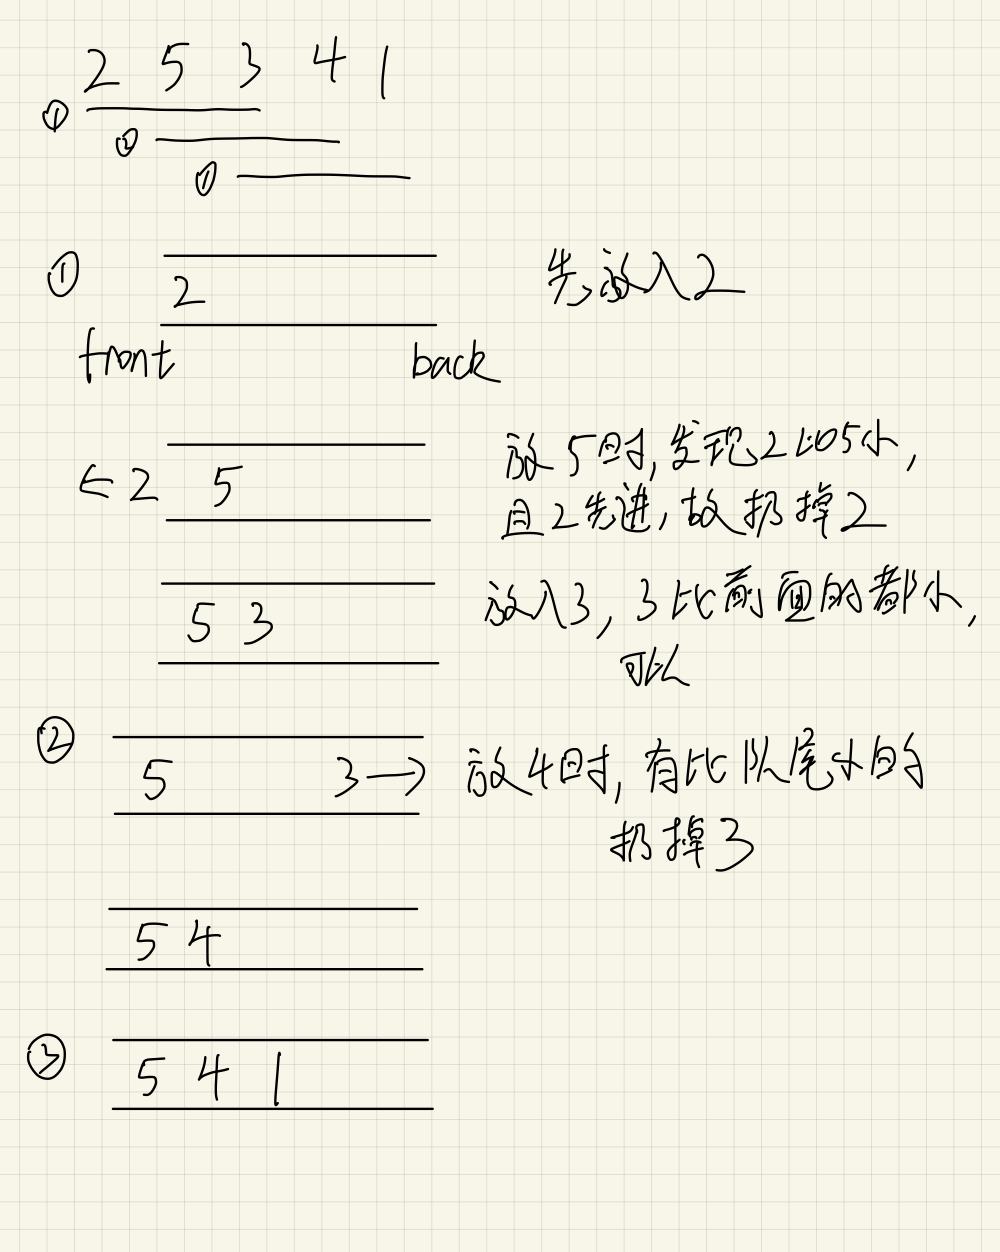 2 5 3 4 1
①
②
①
① 2 先放入2
front back
← 2 5 放5时,发现2比5小,
且2先进,故扔掉2
5 3 放入3,3比前面的都小,
可以
② 5 3 → 放4时,有比队尾小的
扔掉3
5 4
③ 5 4 1